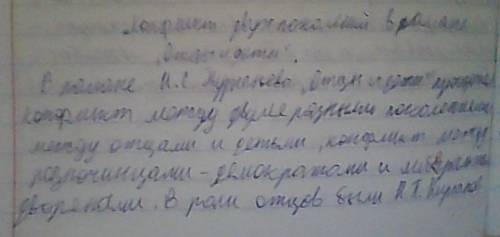 Конфликт двух поколений в романе
„Отцы и дети".
В романе И.С. Тургенева „Отцы и дети"
конфликт между двумя разными поколениями
между отцами и детьми, конфликт между
разночинцами - демократами и
дворянами. В роли отцов были П.П. Кирсанов